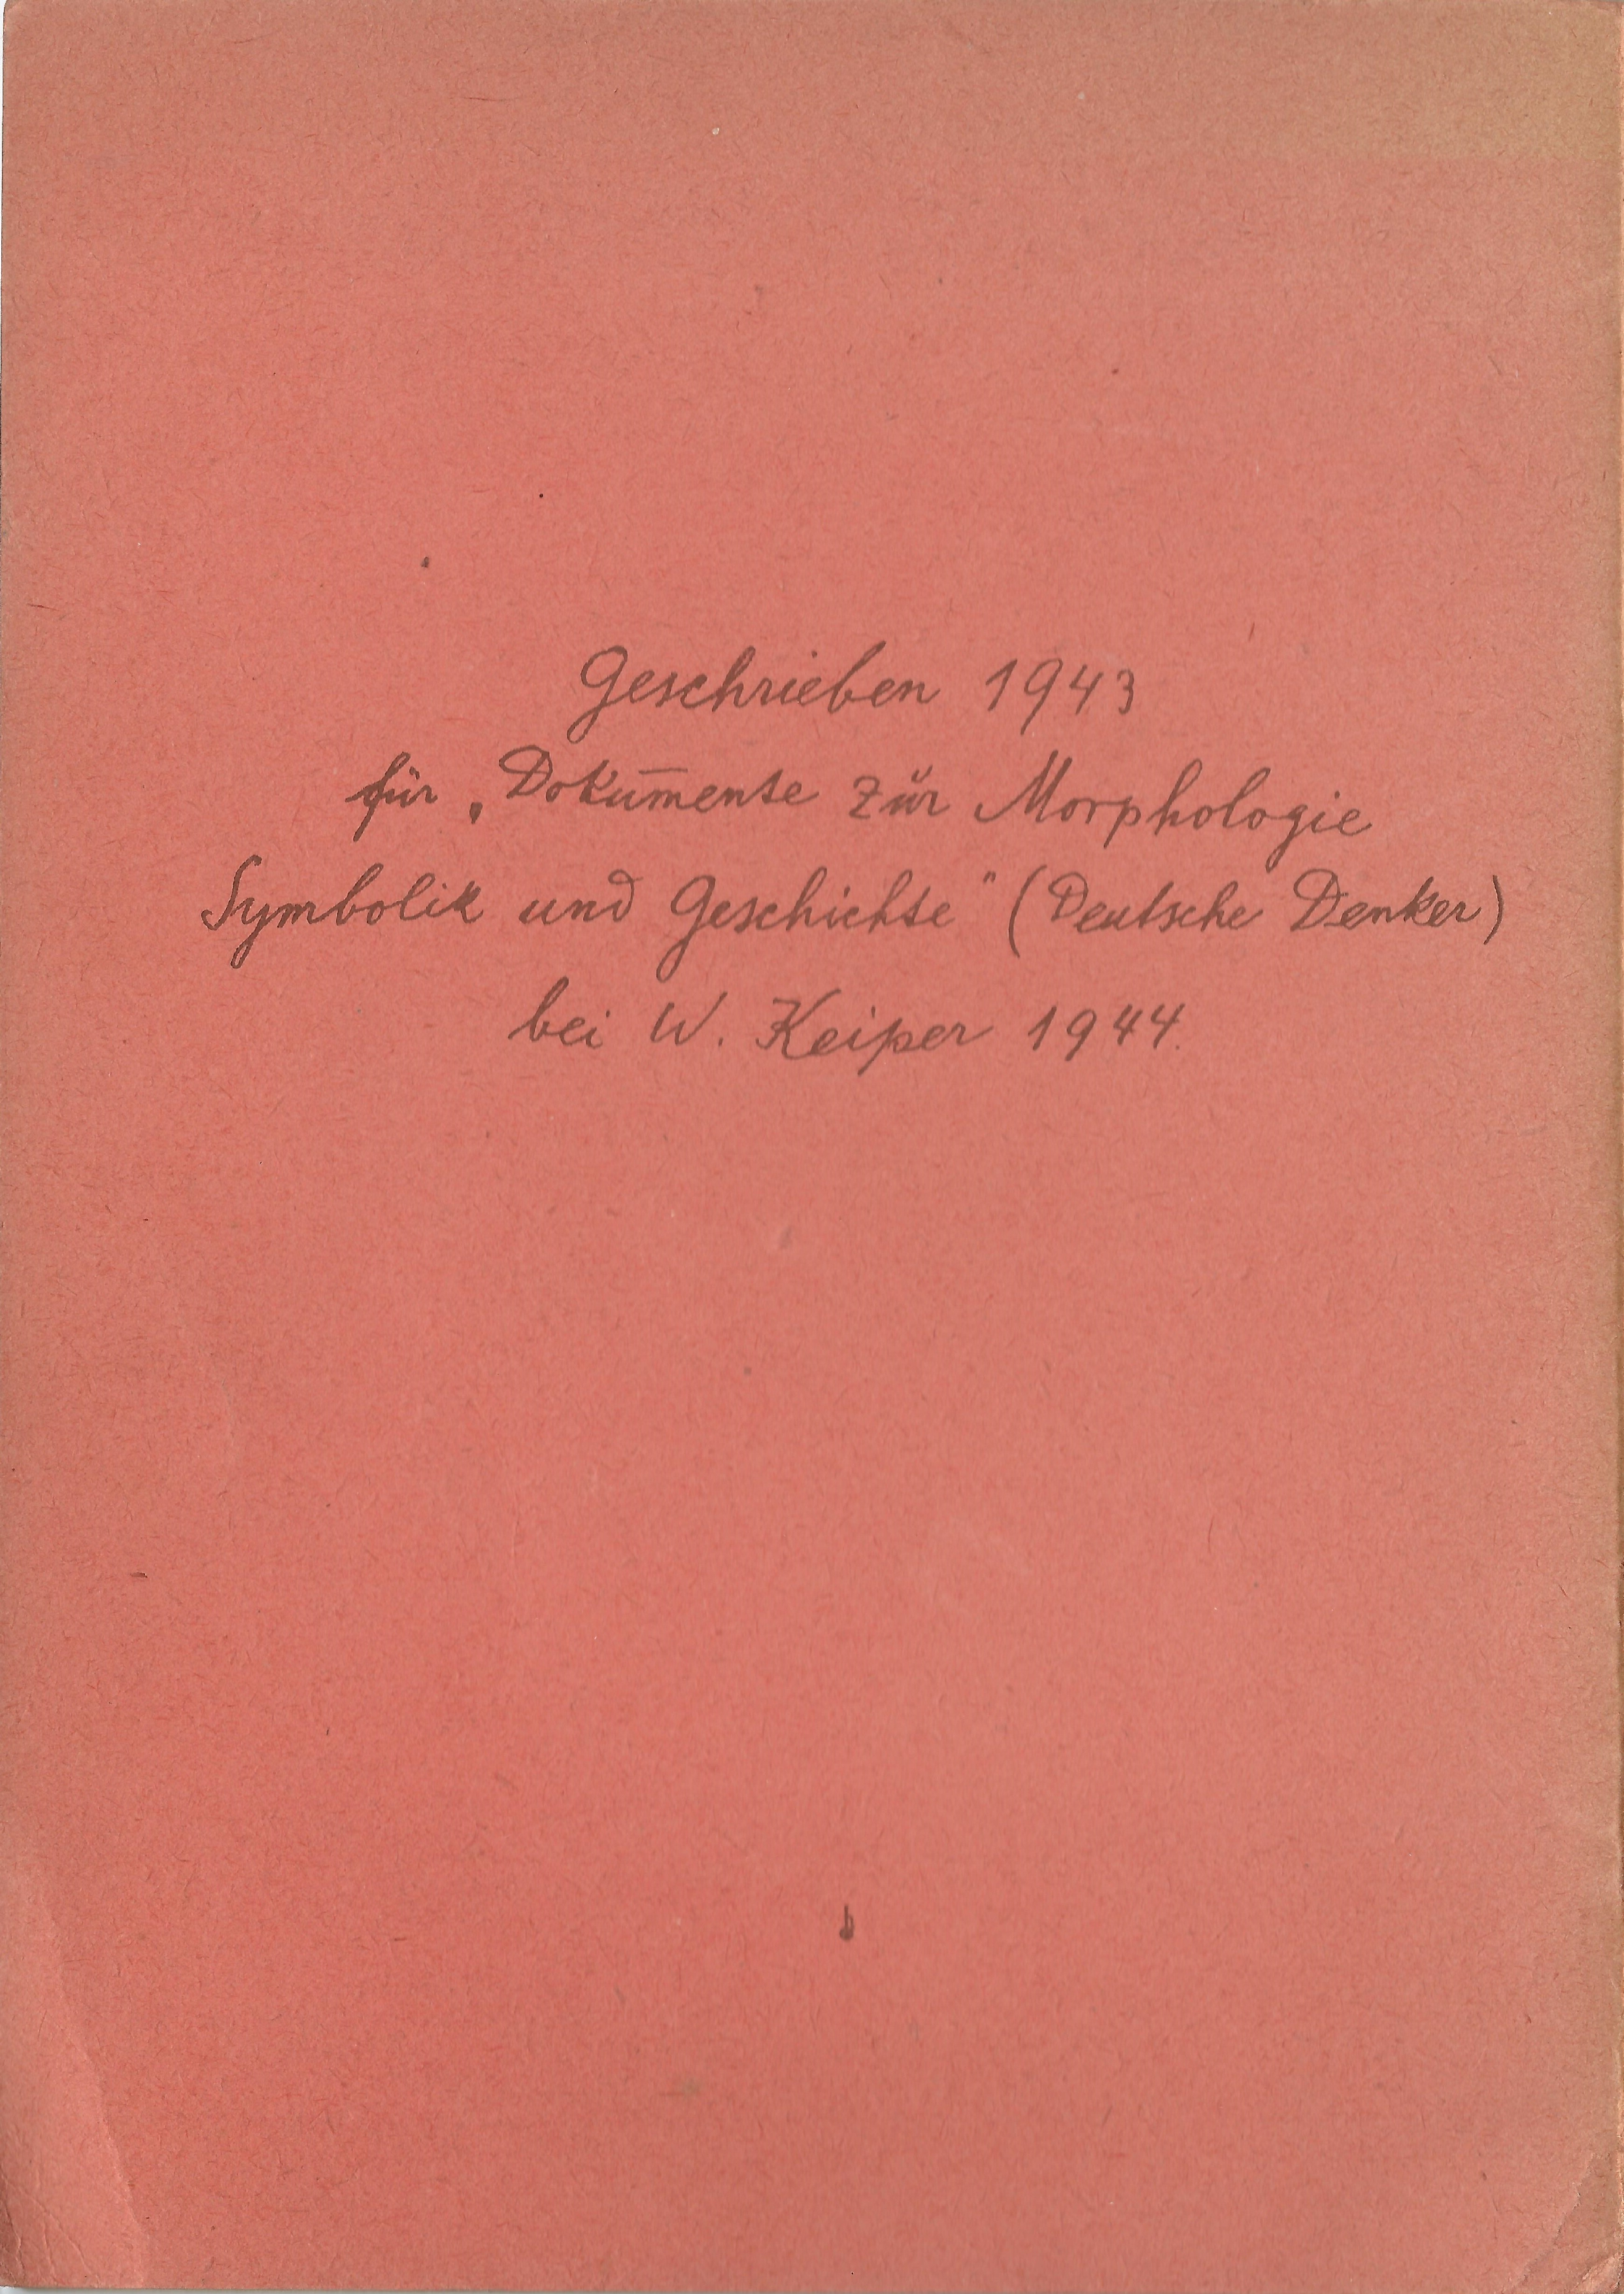 Geschrieben 1943
für „Dokumente zur Morphologie
Symbolik und Geschichte" (Deutsche Denker)
bei W. Keiper 1944.